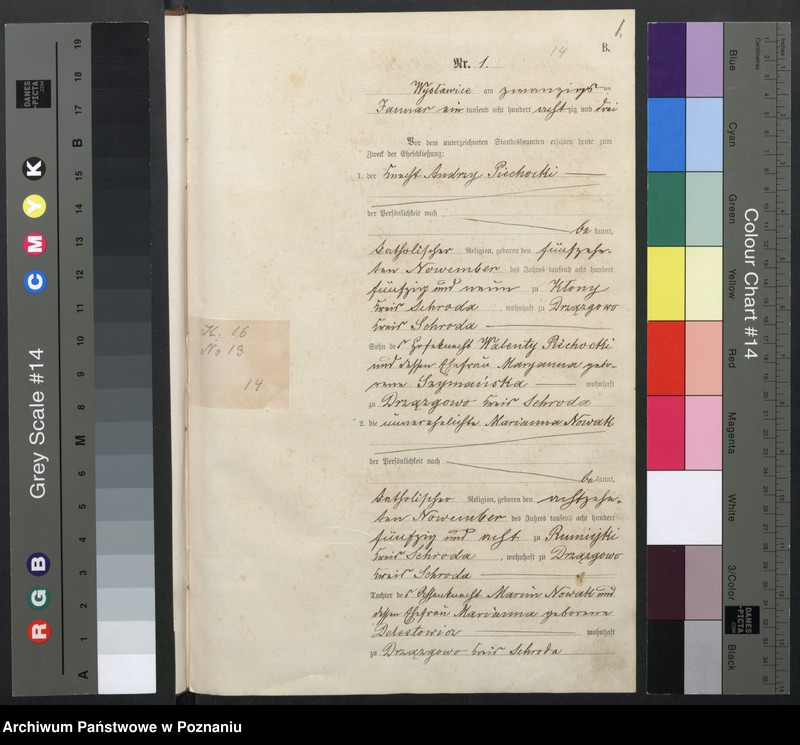 1.
14
B.
Nr. 1.
Wysławice am zwanzigsten
Januar ein tausend acht hundert achtzig und drei
Vor dem unterzeichneten Standesbeamten erschien heute zum
Zweck der Eheschließung:
1. der Knecht Andrzy Piechocki
der Persönlichkeit nach
be kannt,
katholischer Religion, geboren den fünfzehn-
ten November des Jahres tausend acht hundert
fünfzig und neun zu Klony
Kreis Schroda, wohnhaft zu Drzązgowo
Kreis Schroda
Sohn des Hofeknecht Walenty Piechocki
und dessen Ehefrau Maryanna gebo-
rene Szymańska wohnhaft
zu Drzązgowo Kreis Schroda
2. die unverehelichte Marianna Nowak
der Persönlichkeit nach
be kannt,
katholischer Religion, geboren den achtzehn-
ten November des Jahres tausend acht hundert
fünfzig und acht zu Rumiejki
Kreis Schroda, wohnhaft zu Drzązgowo
Kreis Schroda
Tochter des Ochsenknecht Marcin Nowak und
dessen Ehefrau Marianna geborene
wohnhaft
zu Drzązgowo Kreis Schroda
K. 16
No 13
14
Grey Scale #14
Colour Chart #14
Blue
Cyan
Green
Yellow
Red
Magenta
White
3/Color
Black
DANES
-PICTA
.COM
R G B
C M Y K
A
M
B
1 2 3 4 5 6 7 8 9 10 11 12 13 14 15 16 17 18 19
Archiwum Państwowe w Poznaniu